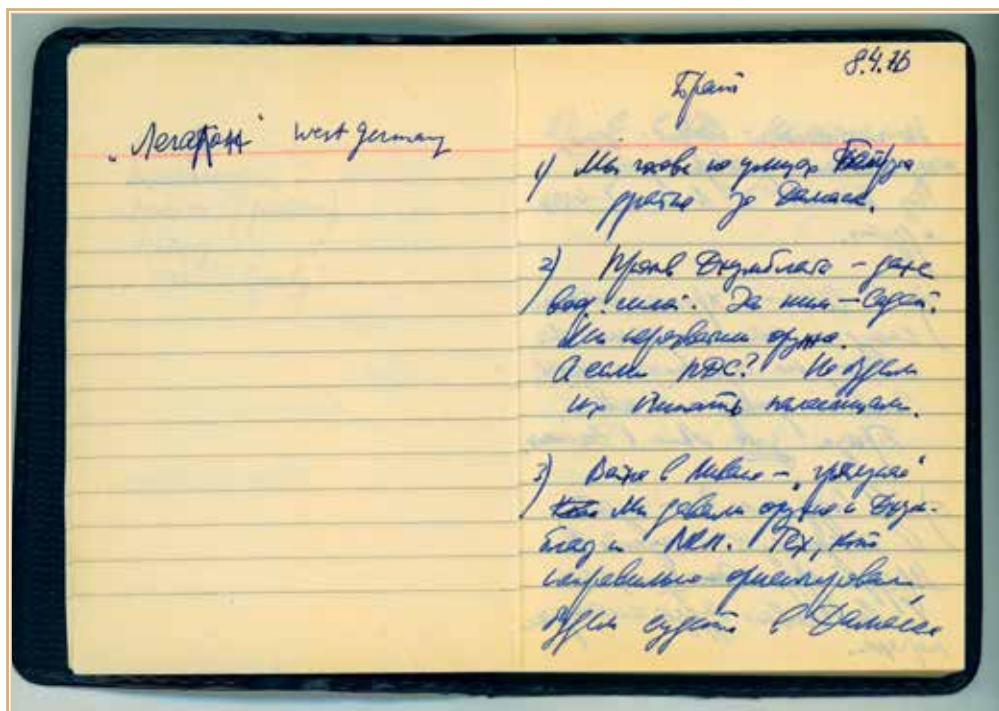 "Легалон" West Germany
8.4.76
Брат
1) Мы готовы на улицах Бейрута
драться за Дамаск.
2) Против Джумблата – даже
воор. силой. За ним – Садат.
Мы перехватили оружие.
А если ПДС? Не будем
их считать палестинцами.
3) Война в Ливане – "грязная"
Мы давали оружие и Джум-
блату и ЛКП. Тех, кто
неправильно ориентировал,
будем судить в Дамаске